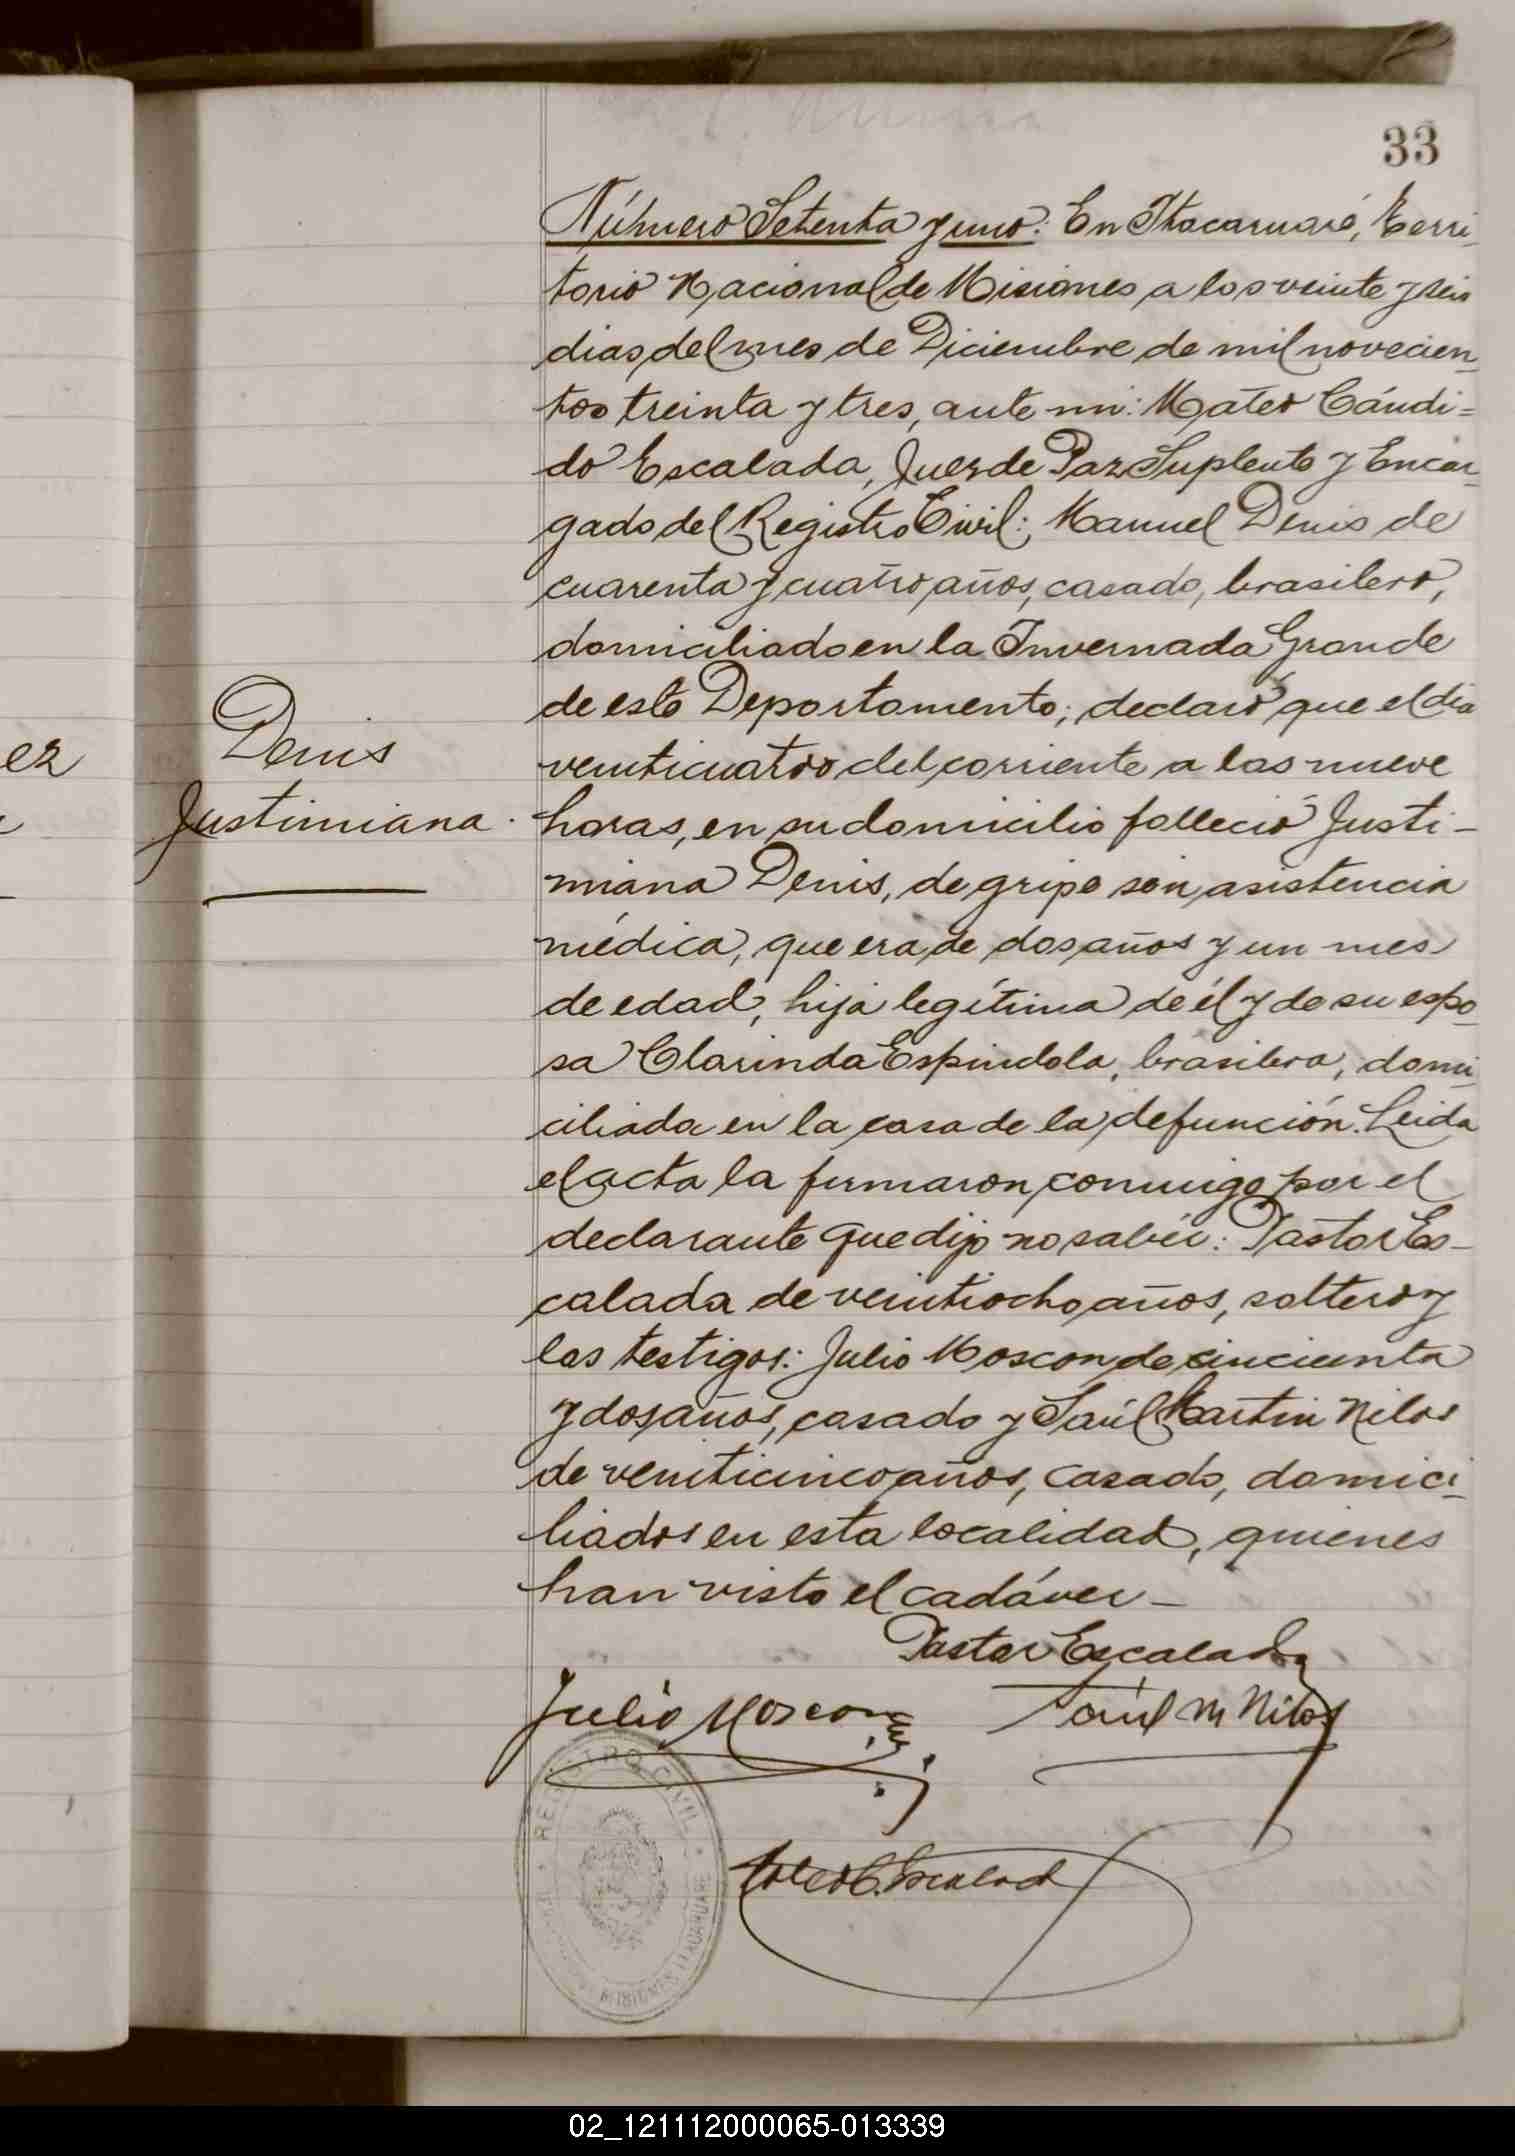 33
Número Setenta y uno: En Itacaruaré, Terri-
torio Nacional de Misiones a los veinte y seis
dias del mes de Diciembre de mil novecien-
tos treinta y tres, ante mi: Mateo Cándi=
do Escalada, Juez de Paz Suplente y Encar-
gado del Registro Civil; Manuel Denis de
cuarenta y cuatro años, casado, brasilero,
domiciliado en la Invernada Grande
de este Departamento; declaró que el dia
veinticuatro del corriente a las nueve
horas, en su domicilio falleció Justi-
niana Denis, de gripe sin asistencia
médica, que era de dos años y un mes
de edad, hija legítima de él y de su espo-
sa Clarinda Espindola, brasilera, domi-
ciliada en la casa de la defunción. Leida
el acta la firmaron conmigo por el
declarante que dijo no saber: Pastor Es-
calada de veintiocho años, soltero y
los testigos: Julio Moscon de cincuenta
y dos años, casado y Saúl Martin Nilos
de veinticinco años, casado, domici-
liados en esta localidad, quienes
han visto el cadáver-
Denis
Justiniana.
ez
Pastor Escalada
Julio Moscon
Saúl M Nilos
Mateo C. Escalada
REGISTRO CIVIL
MISIONES ITACARUARE
02_121112000065-013339